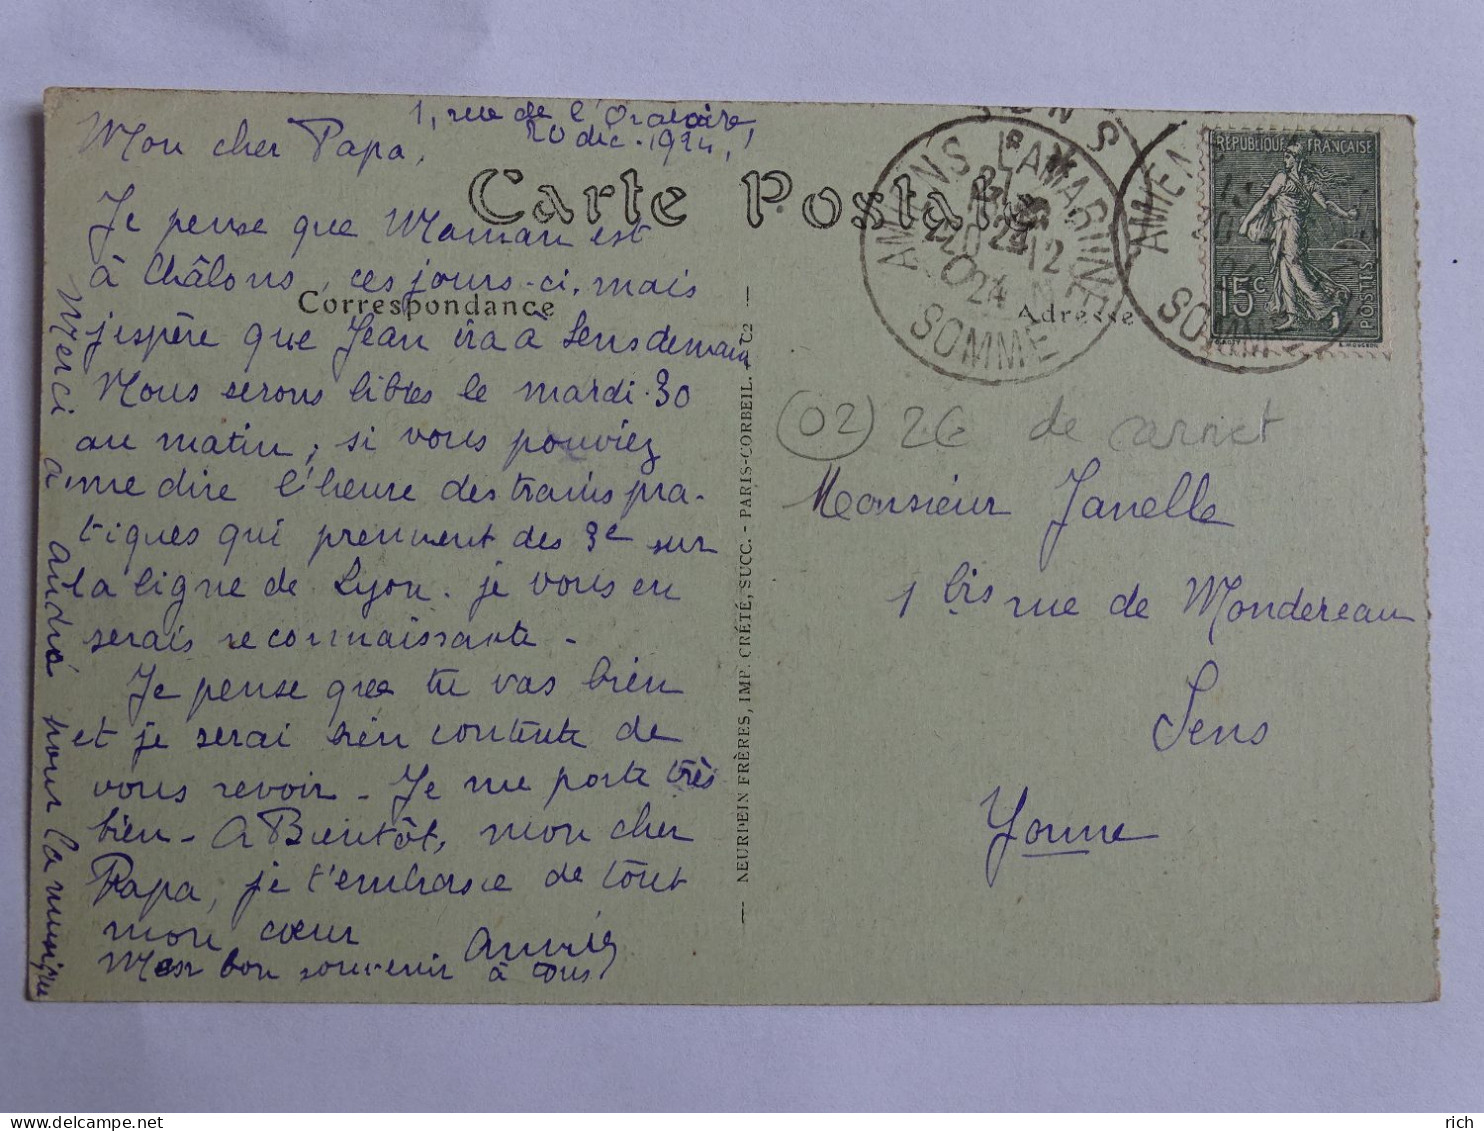 1, rue de l'Oratoire,
20 déc. 1924,
Mon cher Papa,
Carte Postale
Je pense que Maman est
à Châlons, ces jours-ci, mais
Correspondance
j'espère que Jean ira à Sens demain
Nous serons libres le mardi 30
au matin; si vous pouviez
me dire l'heure des trains pra-
tiques qui prennent des 3e sur
la ligne de Lyon. je vous en
serais reconnaissante -
Je pense que tu vas bien
et je serai bien contente de
vous revoir - Je me porte très
bien - A Bientôt, mon cher
Papa, je t'embrasse de tout
mon cœur
bon souvenir à tous
Merci à André pour la musique
NEURDEIN FRÈRES, IMP. CRÉTÉ, SUCC. - PARIS-CORBEIL.
Adresse
AMIENS LAMARTINE
20 12
24
SOMME
AMIEN
SOMME
RÉPUBLIQUE FRANÇAISE
15c
POSTES
02 2€ de carnet
Monsieur Janelle
1 bis rue de Mondereau
Sens
Yonne
rich